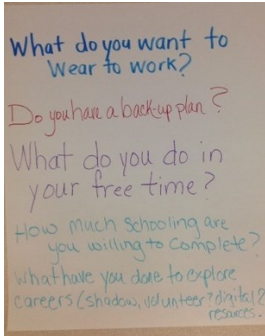 What do you want to
Wear to work?
Do you have a back-up plan?
What do you do in
your free time?
How much schooling are
you willing to complete?
What have you done to explore
careers (shadow, volunteer? digital?
resources.